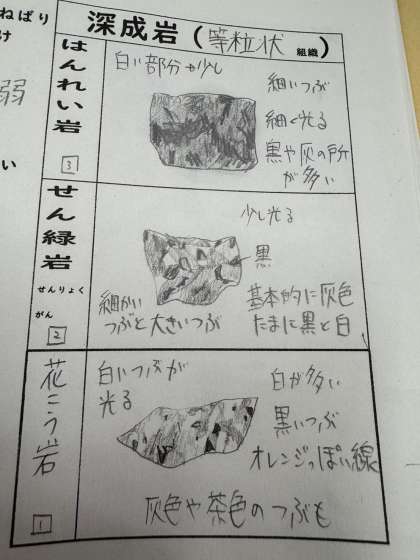 ねばり
け
弱
い
深成岩（等粒状 組織）
はんれい岩
3
白い部分が少し
細いつぶ
細く光る
黒や灰の所
が多い
せん緑岩
せんりょく
がん
2
少し光る
黒
細かい
つぶと大きいつぶ
基本的に灰色
たまに黒と白
花こう岩
1
白いつぶが
光る
白が多い
黒いつぶ
オレンジっぽい線
灰色や茶色のつぶも